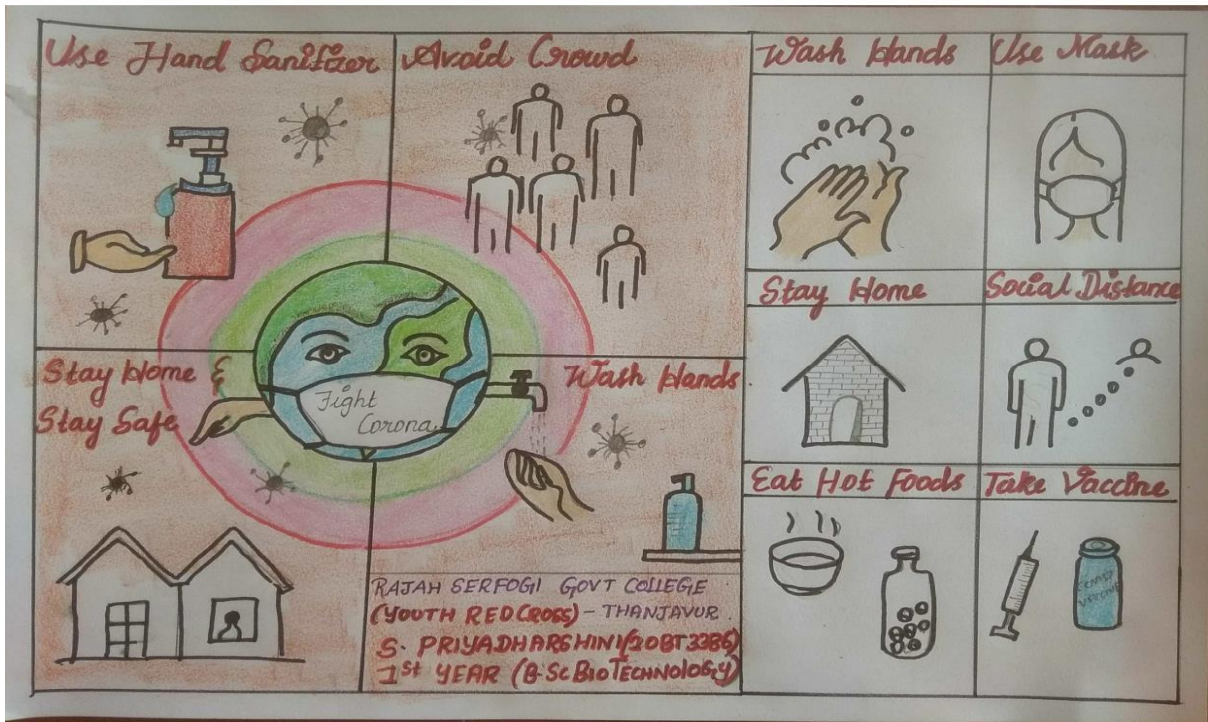 Use Hand Sanitizer
Avoid Crowd
Stay Home &
Stay Safe
Fight
Corona
Wash Hands
RAJAH SERFOGI GOVT COLLEGE
(YOUTH RED CROSS) - THANJAVUR
S. PRIYADHARSHINI (20BT3386)
1st YEAR (B.Sc BIOTECHNOLOGY)
Wash Hands
Use Mask
Stay Home
Social Distance
Eat Hot Foods
Take Vaccine